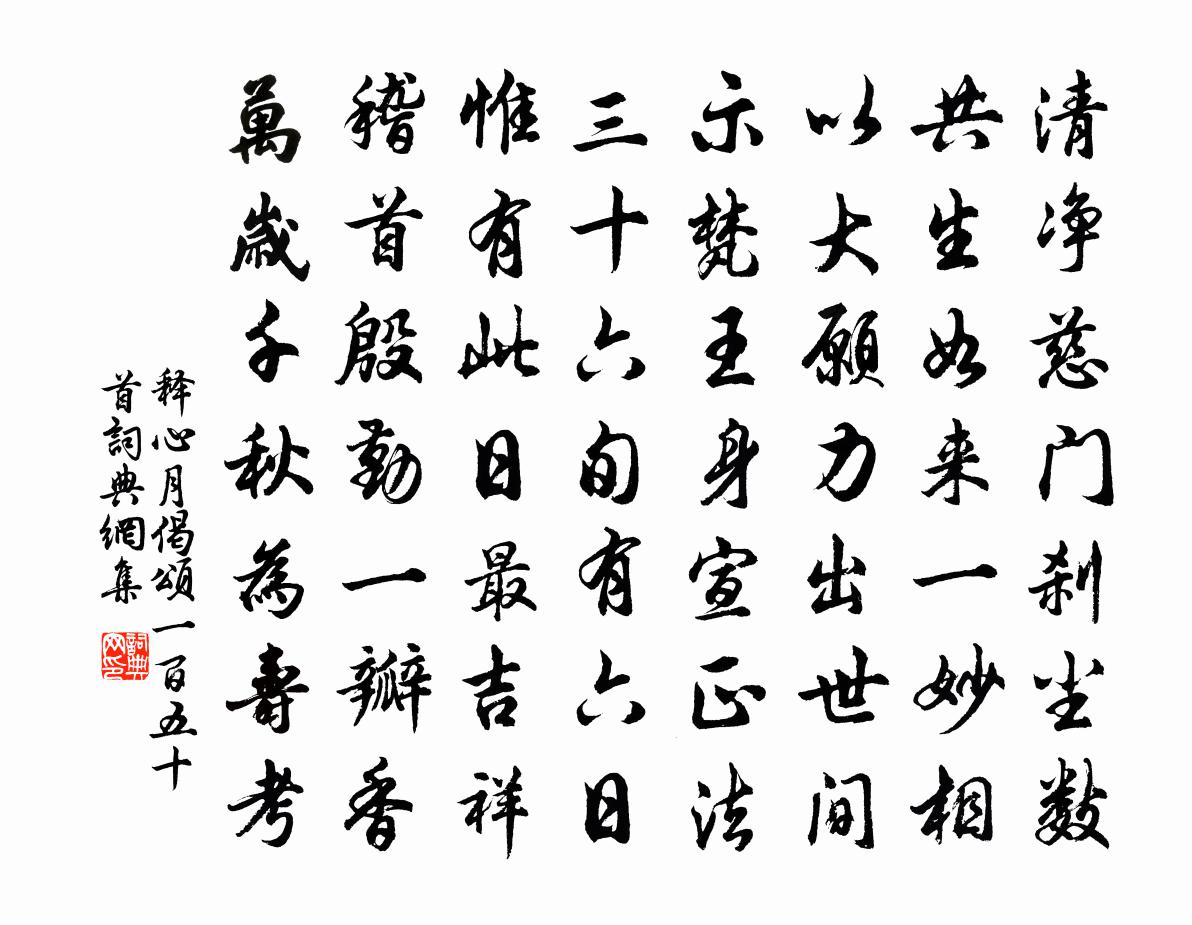 清净慈门刹尘数
共生如来一妙相
以大願力出世间
示梵王身宣正法
三十六旬有六日
惟有此日最吉祥
稽首殷勤一瓣香
萬歲千秋為壽考
释心月偈頌一百五十
首詞典網集
詞典网印